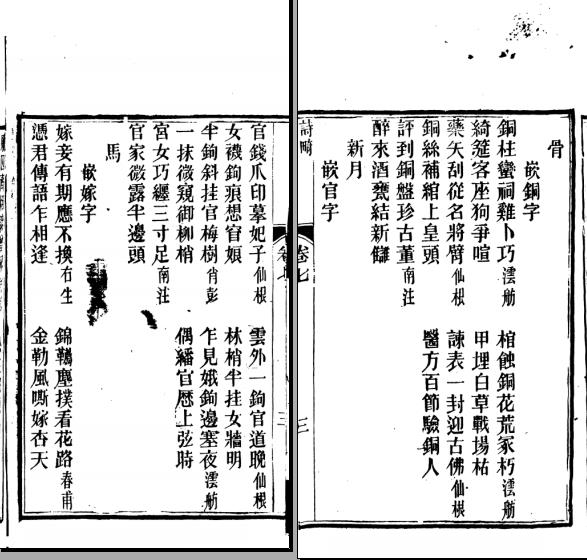 骨
嵌銅字
銅柱蠻祠雞卜巧 澐舫 棺蝕銅花荒冢朽 澐舫
綺筵客座狗爭喧 甲埋白草戰場枯
藥矢刮從名將臂 仙根 諫表一封迎古佛 仙根
銅絲補綰上皇頭 醫方百節驗銅人
評到銅盤珍古董 南注
醉來酒甕結新讎
新月
嵌官字
詩畸 卷七 三
官錢爪印摹妃子 仙根 雲外一鉤官道晚 仙根
女襪鉤痕想官娘 林梢半挂女牆明
半鉤斜挂官梅樹 肖彭 乍見娥鉤邊塞夜 澐舫
一抹微窺御柳梢 偶繙官歷上弦時
宮女巧纏三寸足 南注
官家微露半邊頭
馬
嵌嫁字
嫁妾有期應不換 右生 錦韉塵撲看花路 春甫
憑君傳語乍相逢 金勒風嘶嫁杏天